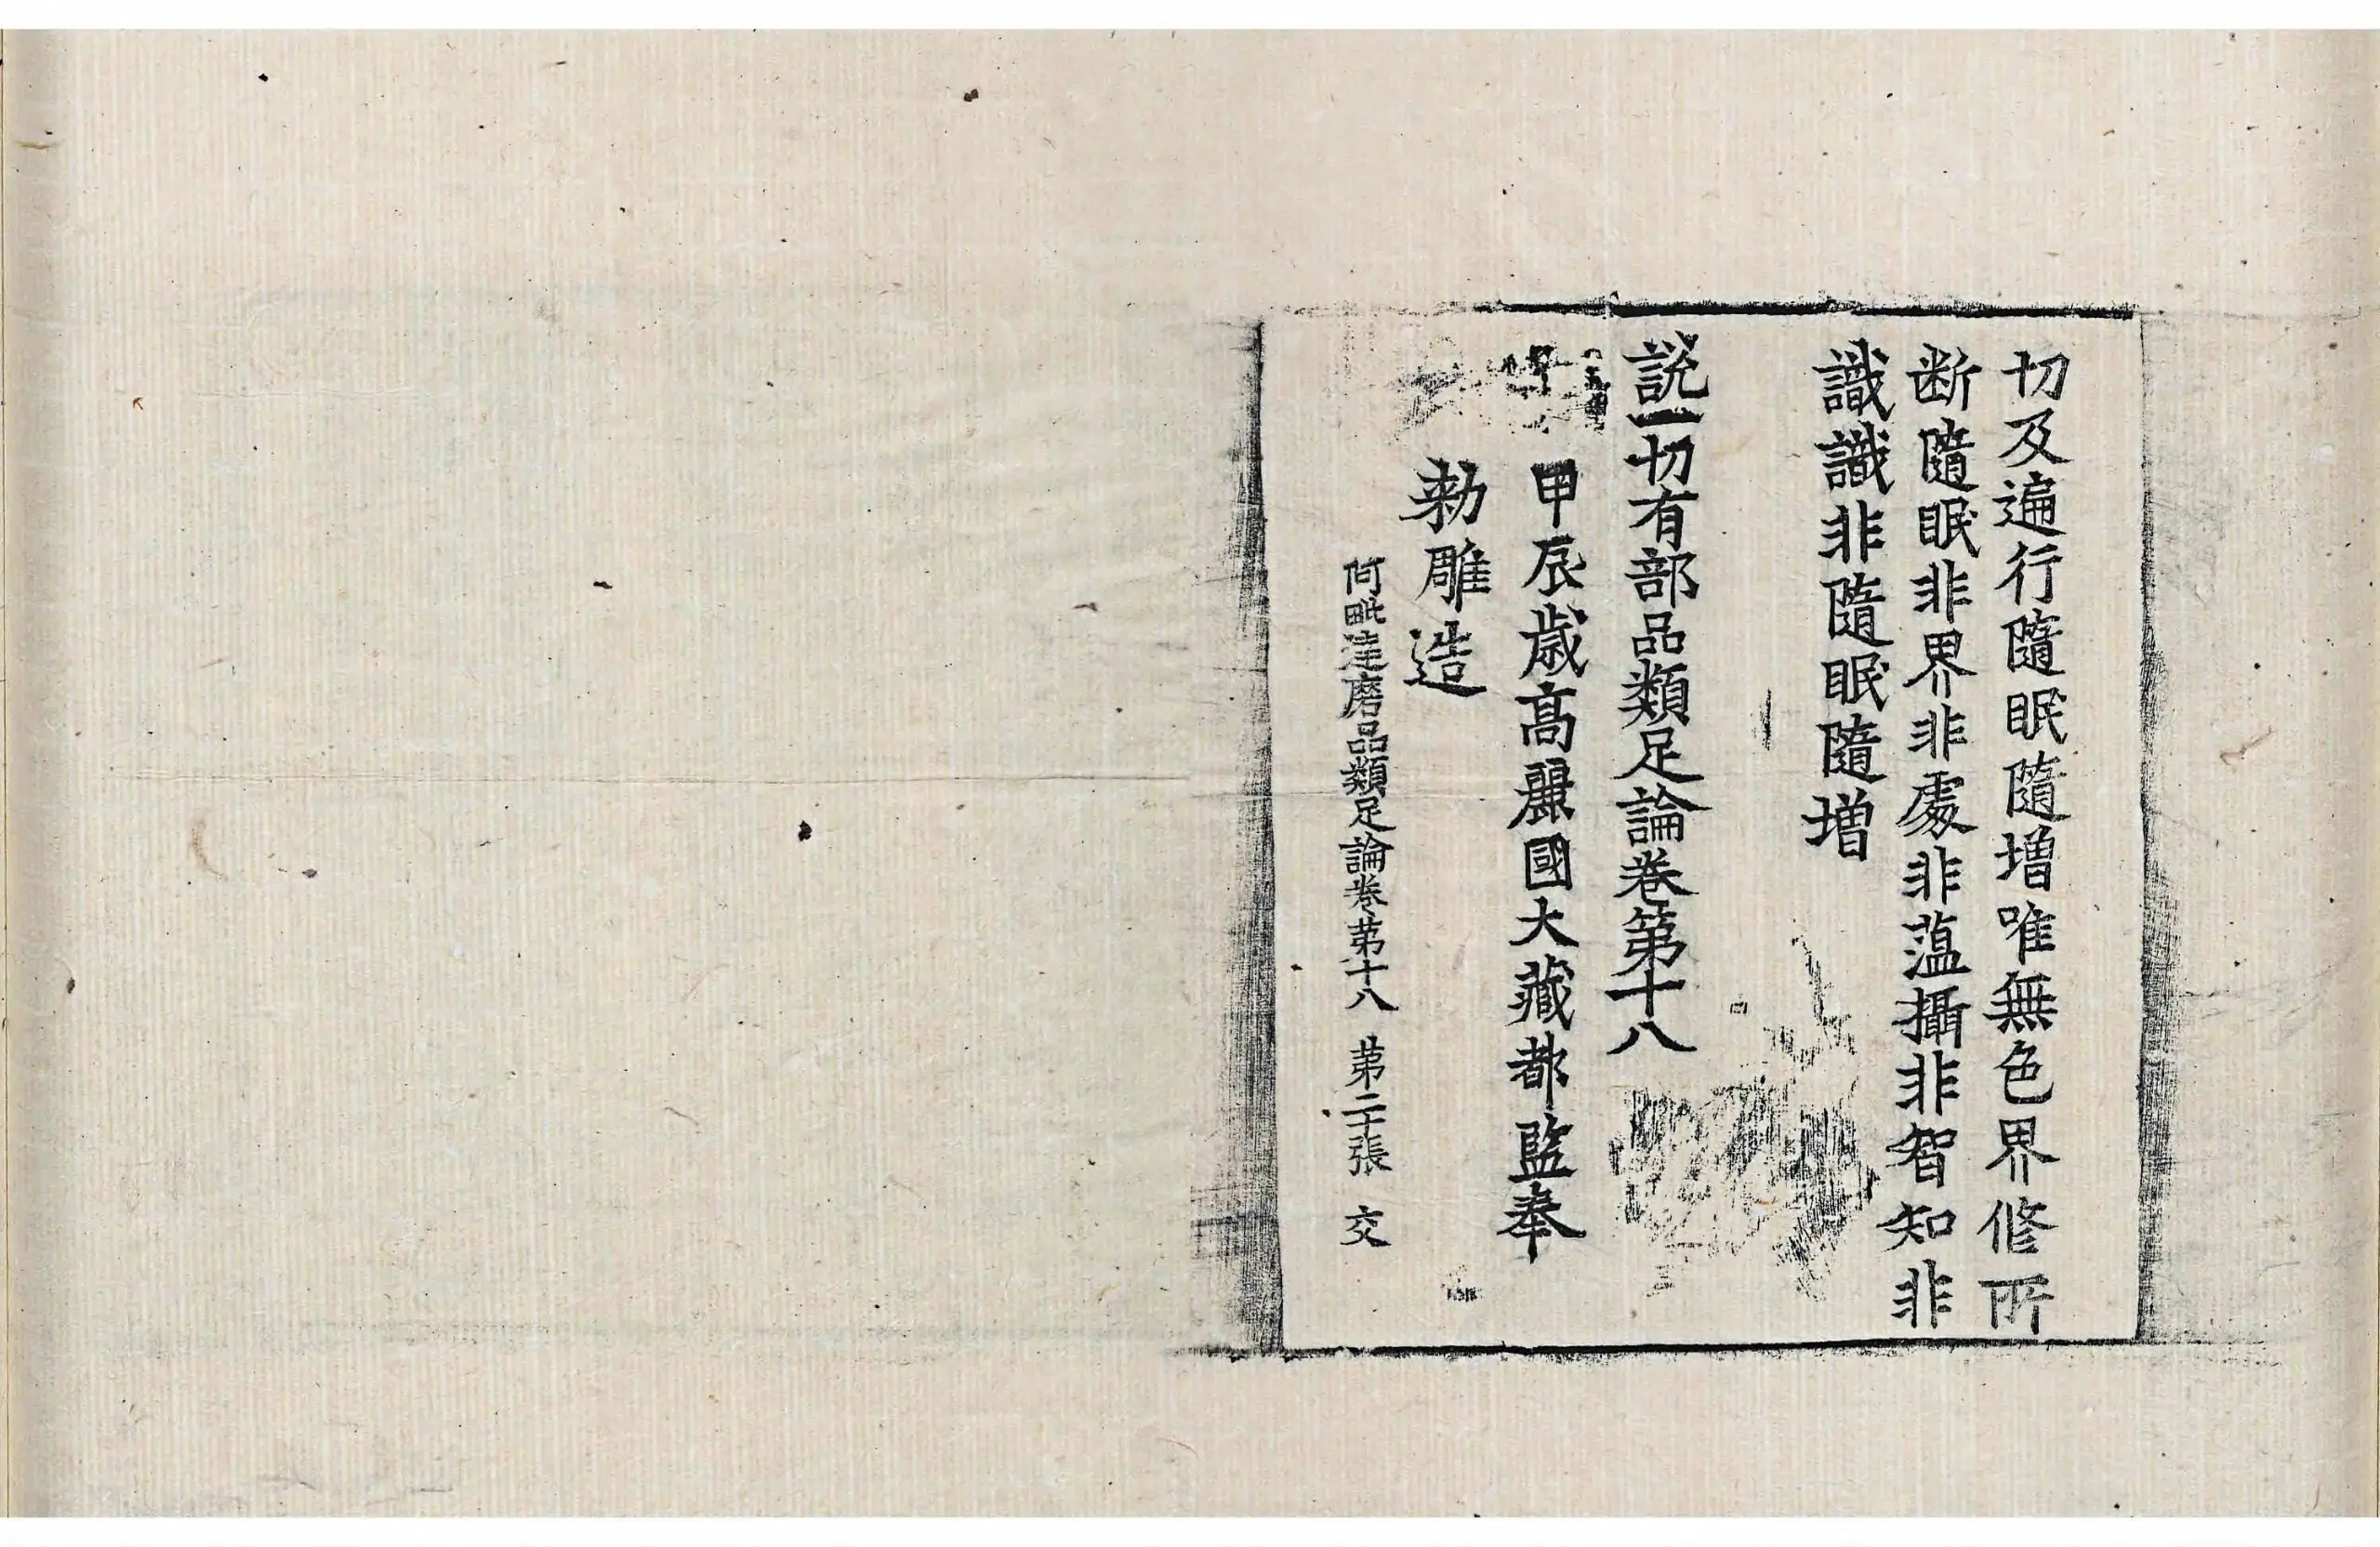 切及遍行隨眠隨增唯無色界修所
断隨眠非界非處非蕰攝非智知非
識識非隨眠隨增
說一切有部品類足論卷第十八
甲辰歲高麗國大藏都監奉
勑雕造
阿毗達磨品類足論卷第十八 第二十張 交